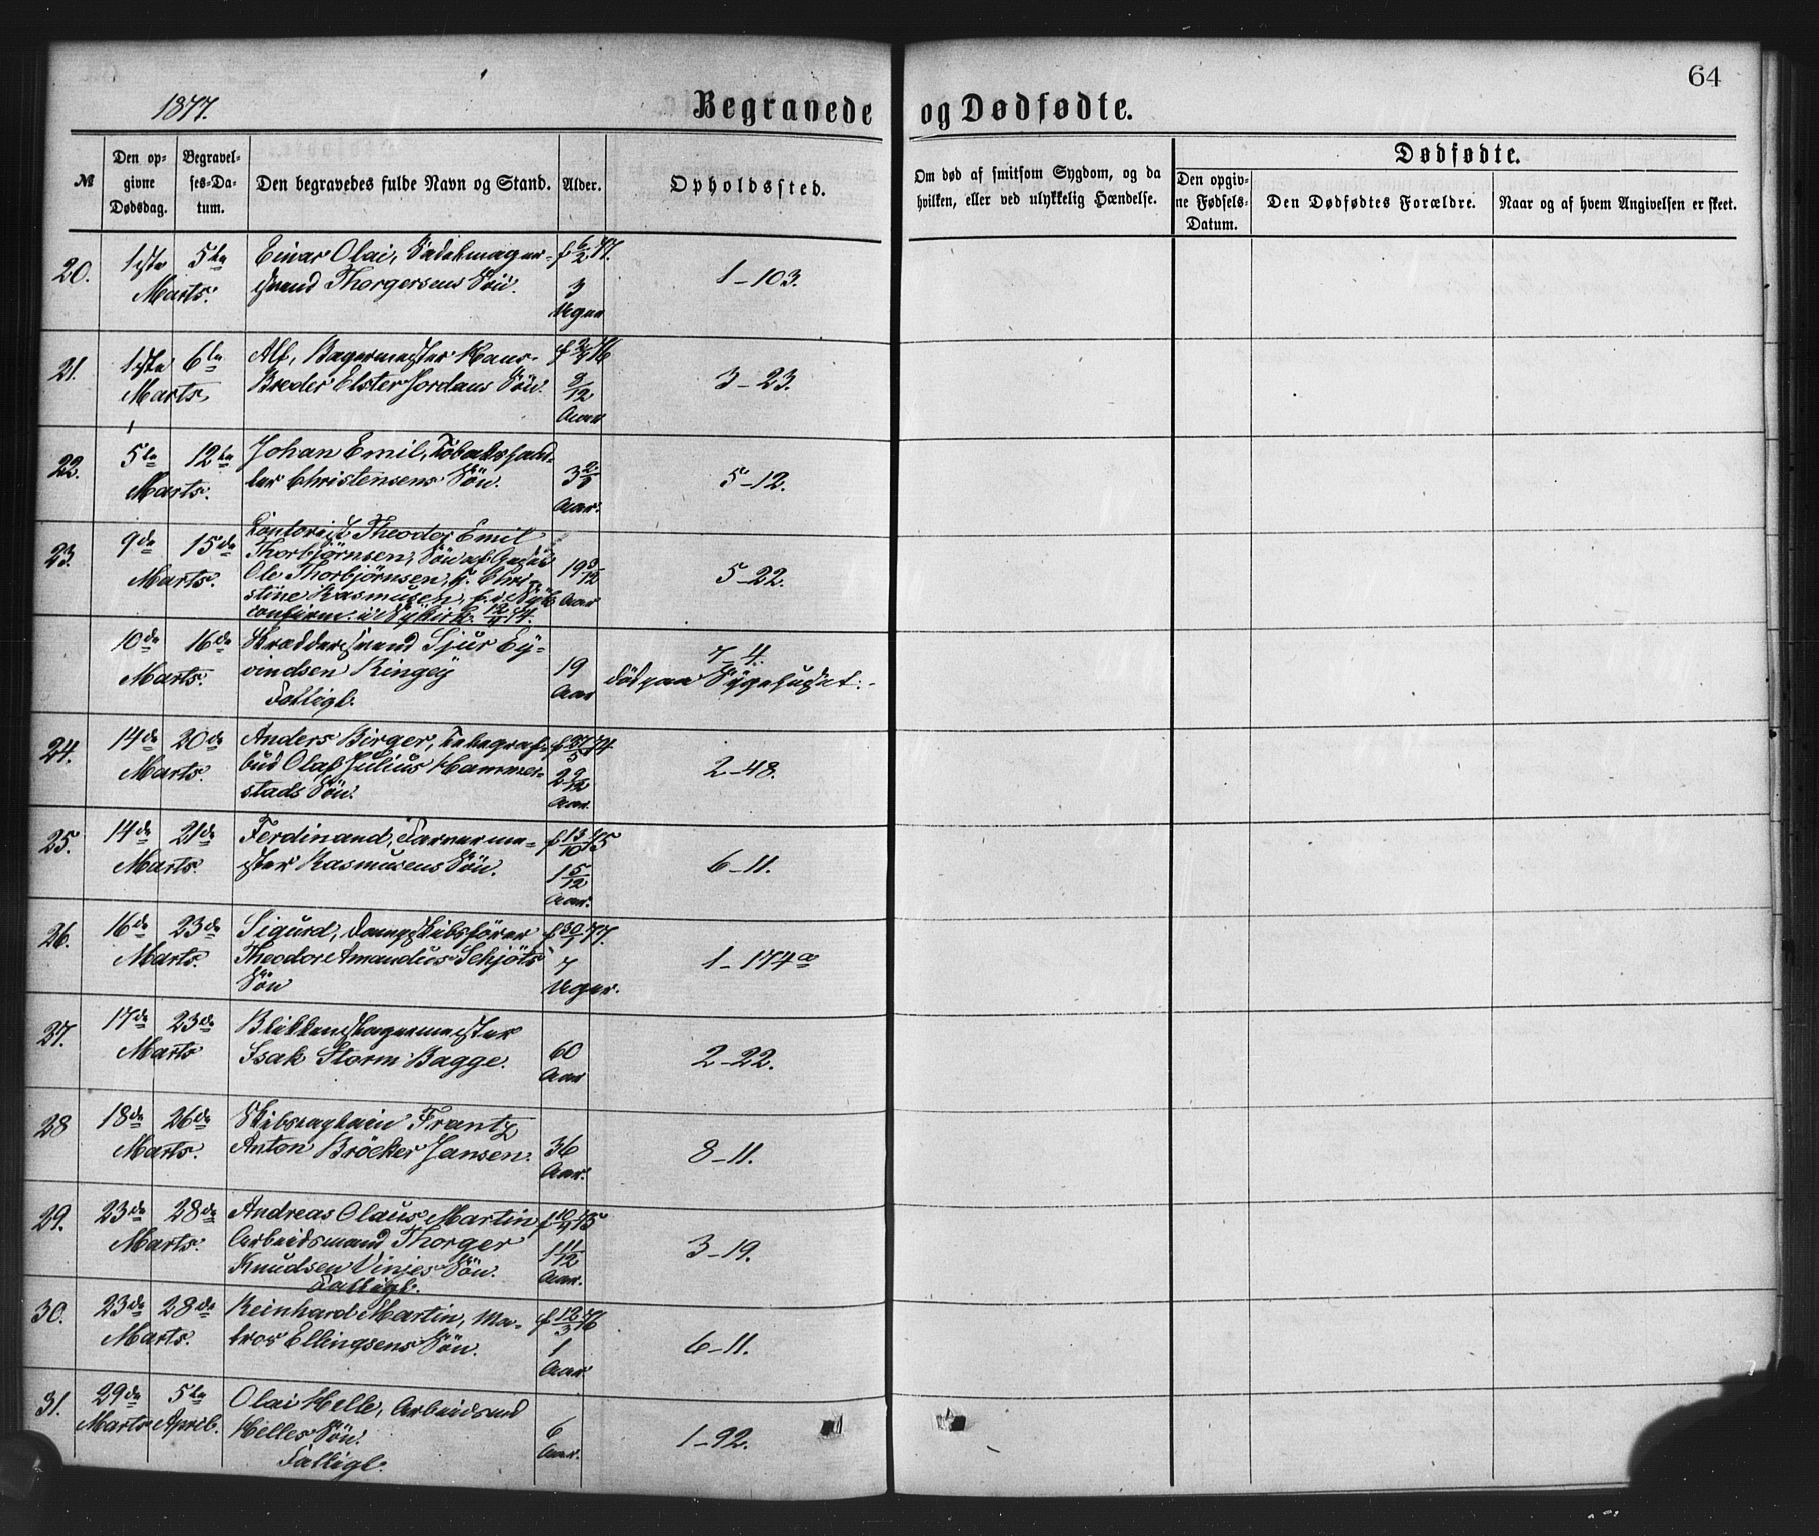 64
1877.
Begravede og Dødfødte.
№
Den op-
givne
Dødsdag.
Begravel-
ses-Da-
tum.
Den begravedes fulde Navn og Stand.
Alder.
Opholdssted.
Om død af smitsom Sygdom, og da
hvilken, eller ved ulykkelig Hændelse.
Dødfødte.
Den opgiv-
ne Fødsels-
Datum.
Den Dødfødtes Forældre.
Naar og af hvem Angivelsen er skeet.
20.
1ste
Marts.
5te
Einar Olai, Sadelmager-
svend Thorgersens Søn.
f 6/2 77.
3
Uger
1-103.
21.
1ste
Marts,
6te
Alf, Bagermester Hans
Breder Elster Jordans Søn.
9/12
Aar
3-23.
22.
5te
Marts.
12te
Johan Emil, Tobakshand-
ler Christensens Søn.
Aar.
5-12.
23.
9de
Marts.
15de
Contorist Theodor Emil
Thorbjørnsen, Søn af
Ole Thorbjørnsen, h. Chri-
stine Rasmusen, f. i
confirm. i Nykirk.
19
Aar
5-22.
10de
Marts.
16de
Skræddersvend Sjur Ey-
vindsen Ringøy
Fattigl.
19
Aar
7-4.
død paa Sygehuset.
24.
14de
Marts.
20de
Anders Birger, Telegraf-
bud Olaf Julius Hammer-
stads Søn.
f 27/5 74
2 9/12
Aar.
2-48.
25.
14de
Marts.
21de
Ferdinand, Garverme-
ster Rasmusens Søn.
f 13/10 75
1 5/12
Aar.
6-11.
26.
16de
Marts.
23de
Sigurd, Dampskibsfører
Theodor Amandus Schjøts
Søn
f 30/1 77.
7
Uger.
1-174a
27.
17de
Marts
23de
Blikkenslagermester
Isak Storm Bagge.
60
Aar
2-22.
28
18de
Marts.
26de
Skibscaptain Frantz
Anton Bröcker Jansen.
36
Aar.
8-11.
29.
23de
Marts.
28de
Andreas Olaus Martin
Arbeidsmand Thorger
Knudsen Vinjes Søn.
Fattigl.
f 10/4 75
1 11/12
Aar.
3-19.
30.
23de
Marts.
28de
Reinhard Martin, Ma-
tros Ellingsens Søn.
f 12/3 76
1
Aar
6-11.
31.
29de
Marts
5te
April.
Olai Helle, Arbeidsmd
Helles Søn.
Fattigl.
6
Aar.
1-92.